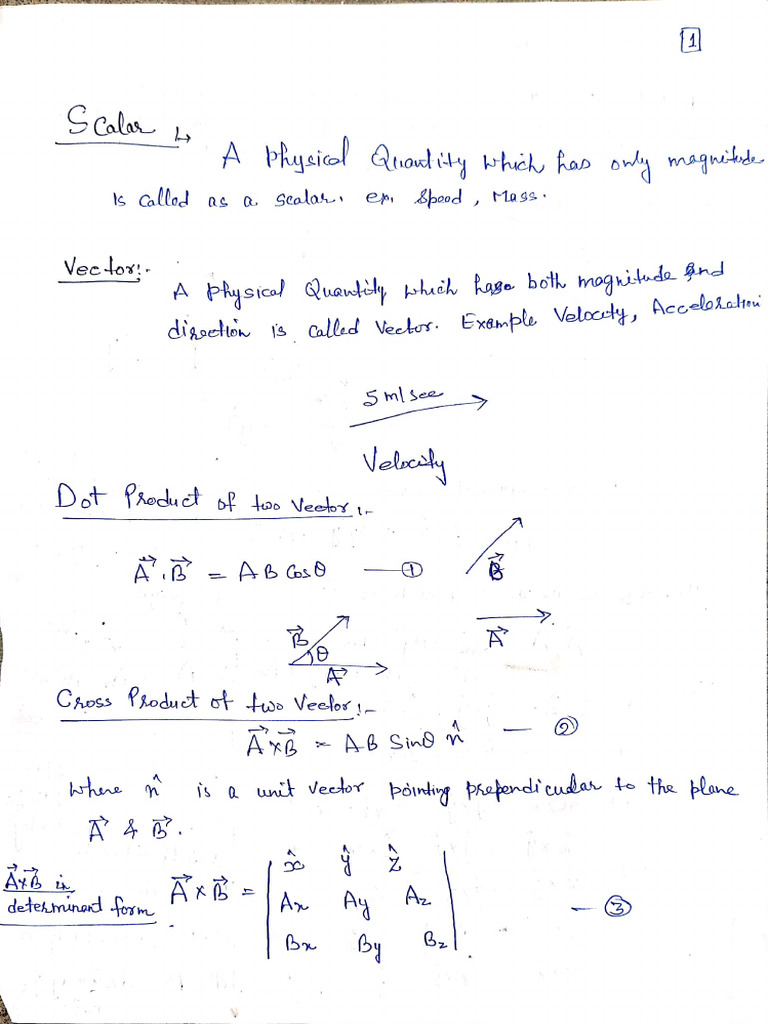 1
Scalar ↳
A Physical Quantity which has only magnitude
is called as a scalar. ex. Speed, Mass.
Vector:-
A Physical Quantity which has both magnitude and
direction is called Vector. Example Velocity, Acceleration
5 m/sec
Velocity
Dot Product of two Vector:-
A⃗ . B⃗ = A B Cosθ — ①
B⃗
A⃗
B⃗
θ
A⃗
Cross Product of two Vector:-
A⃗ × B⃗ = A B Sinθ n̂ — ②
where n̂ is a unit vector pointing prependicular to the plane
A⃗ & B⃗.
A⃗×B⃗ in
determinant form
A⃗ × B⃗ =
x̂ ŷ ẑ
Ax Ay Az
Bx By Bz
— ③